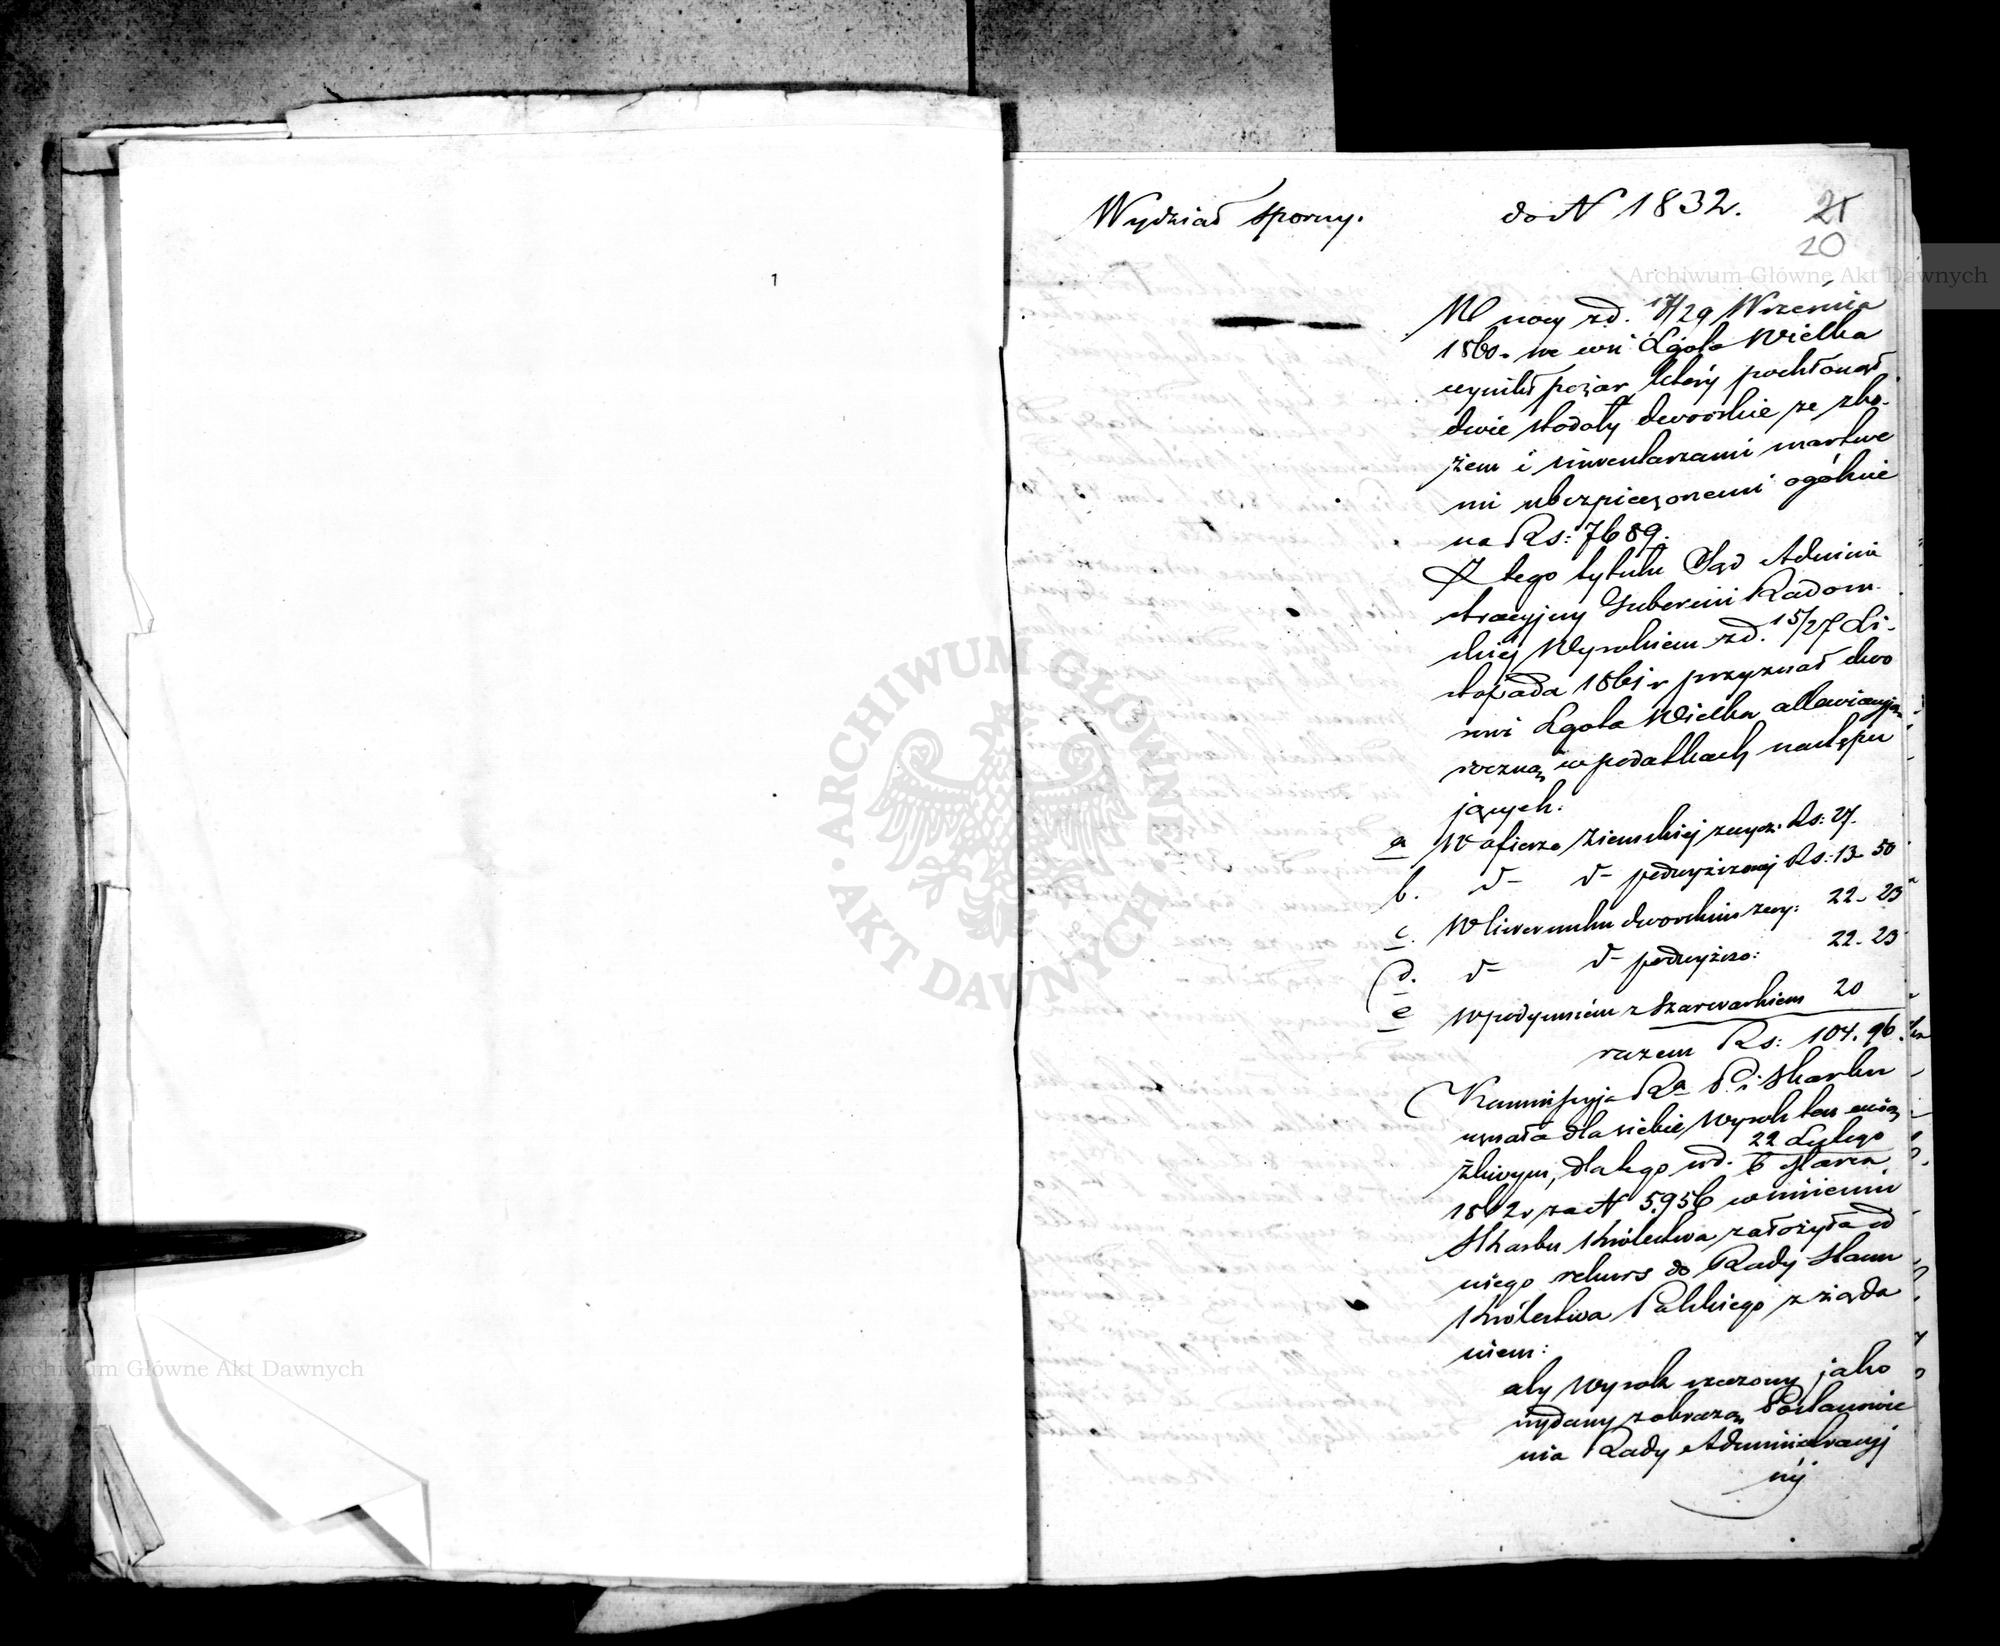 1
Wydział Sporny.
do N 1832.
21
20
W nocy z d. 17/29 Września
1860. we wsi Lgota Wielka
wynikł pożar, który pochłonął
dwie stodoły dworskie ze zbo-
żem i inwentarzami martwe
mi ubezpieczonemi ogólnie
na Rs: 7689.
Z tego tytułu Sąd Admini
stracyjny Gubernii Radom-
skiej Wyrokiem z d. 15/27 Li-
stopada 1861 r przyznał dwo
rowi Lgota Wielka allewiacyją
roczną w podatkach następu
jących:
a W ofierze Ziemskiej zwycz: Rs: 27.
b. d- d- podwyższonej Rs: 13- 50
c. W liwerunku dworskim zwy: 22- 23
d. d- d- podwyższo: 22- 23
e W podymném z Szarwarkiem 20
razem Rs: 104. 96.
Kommissyja Rz P. i Skarbu
uznała dla siebie Wyrok ten uciąż
żliwym, dlatego w d. 22 Lutego
6 Marca
1862 r za N 5956 w imieniu
Skarbu Królestwa założyła od
niego rekurs do Rady Stanu
Królestwa Polskiego z żąda
niem:
aby Wyrok rzeczony jako
wydany z obrazą Postanowie
nia Rady Administracyj
néj
Archiwum Główne Akt Dawnych
Archiwum Główne Akt Dawnych
ARCHIWUM GŁÓWNE AKT DAWNYCH